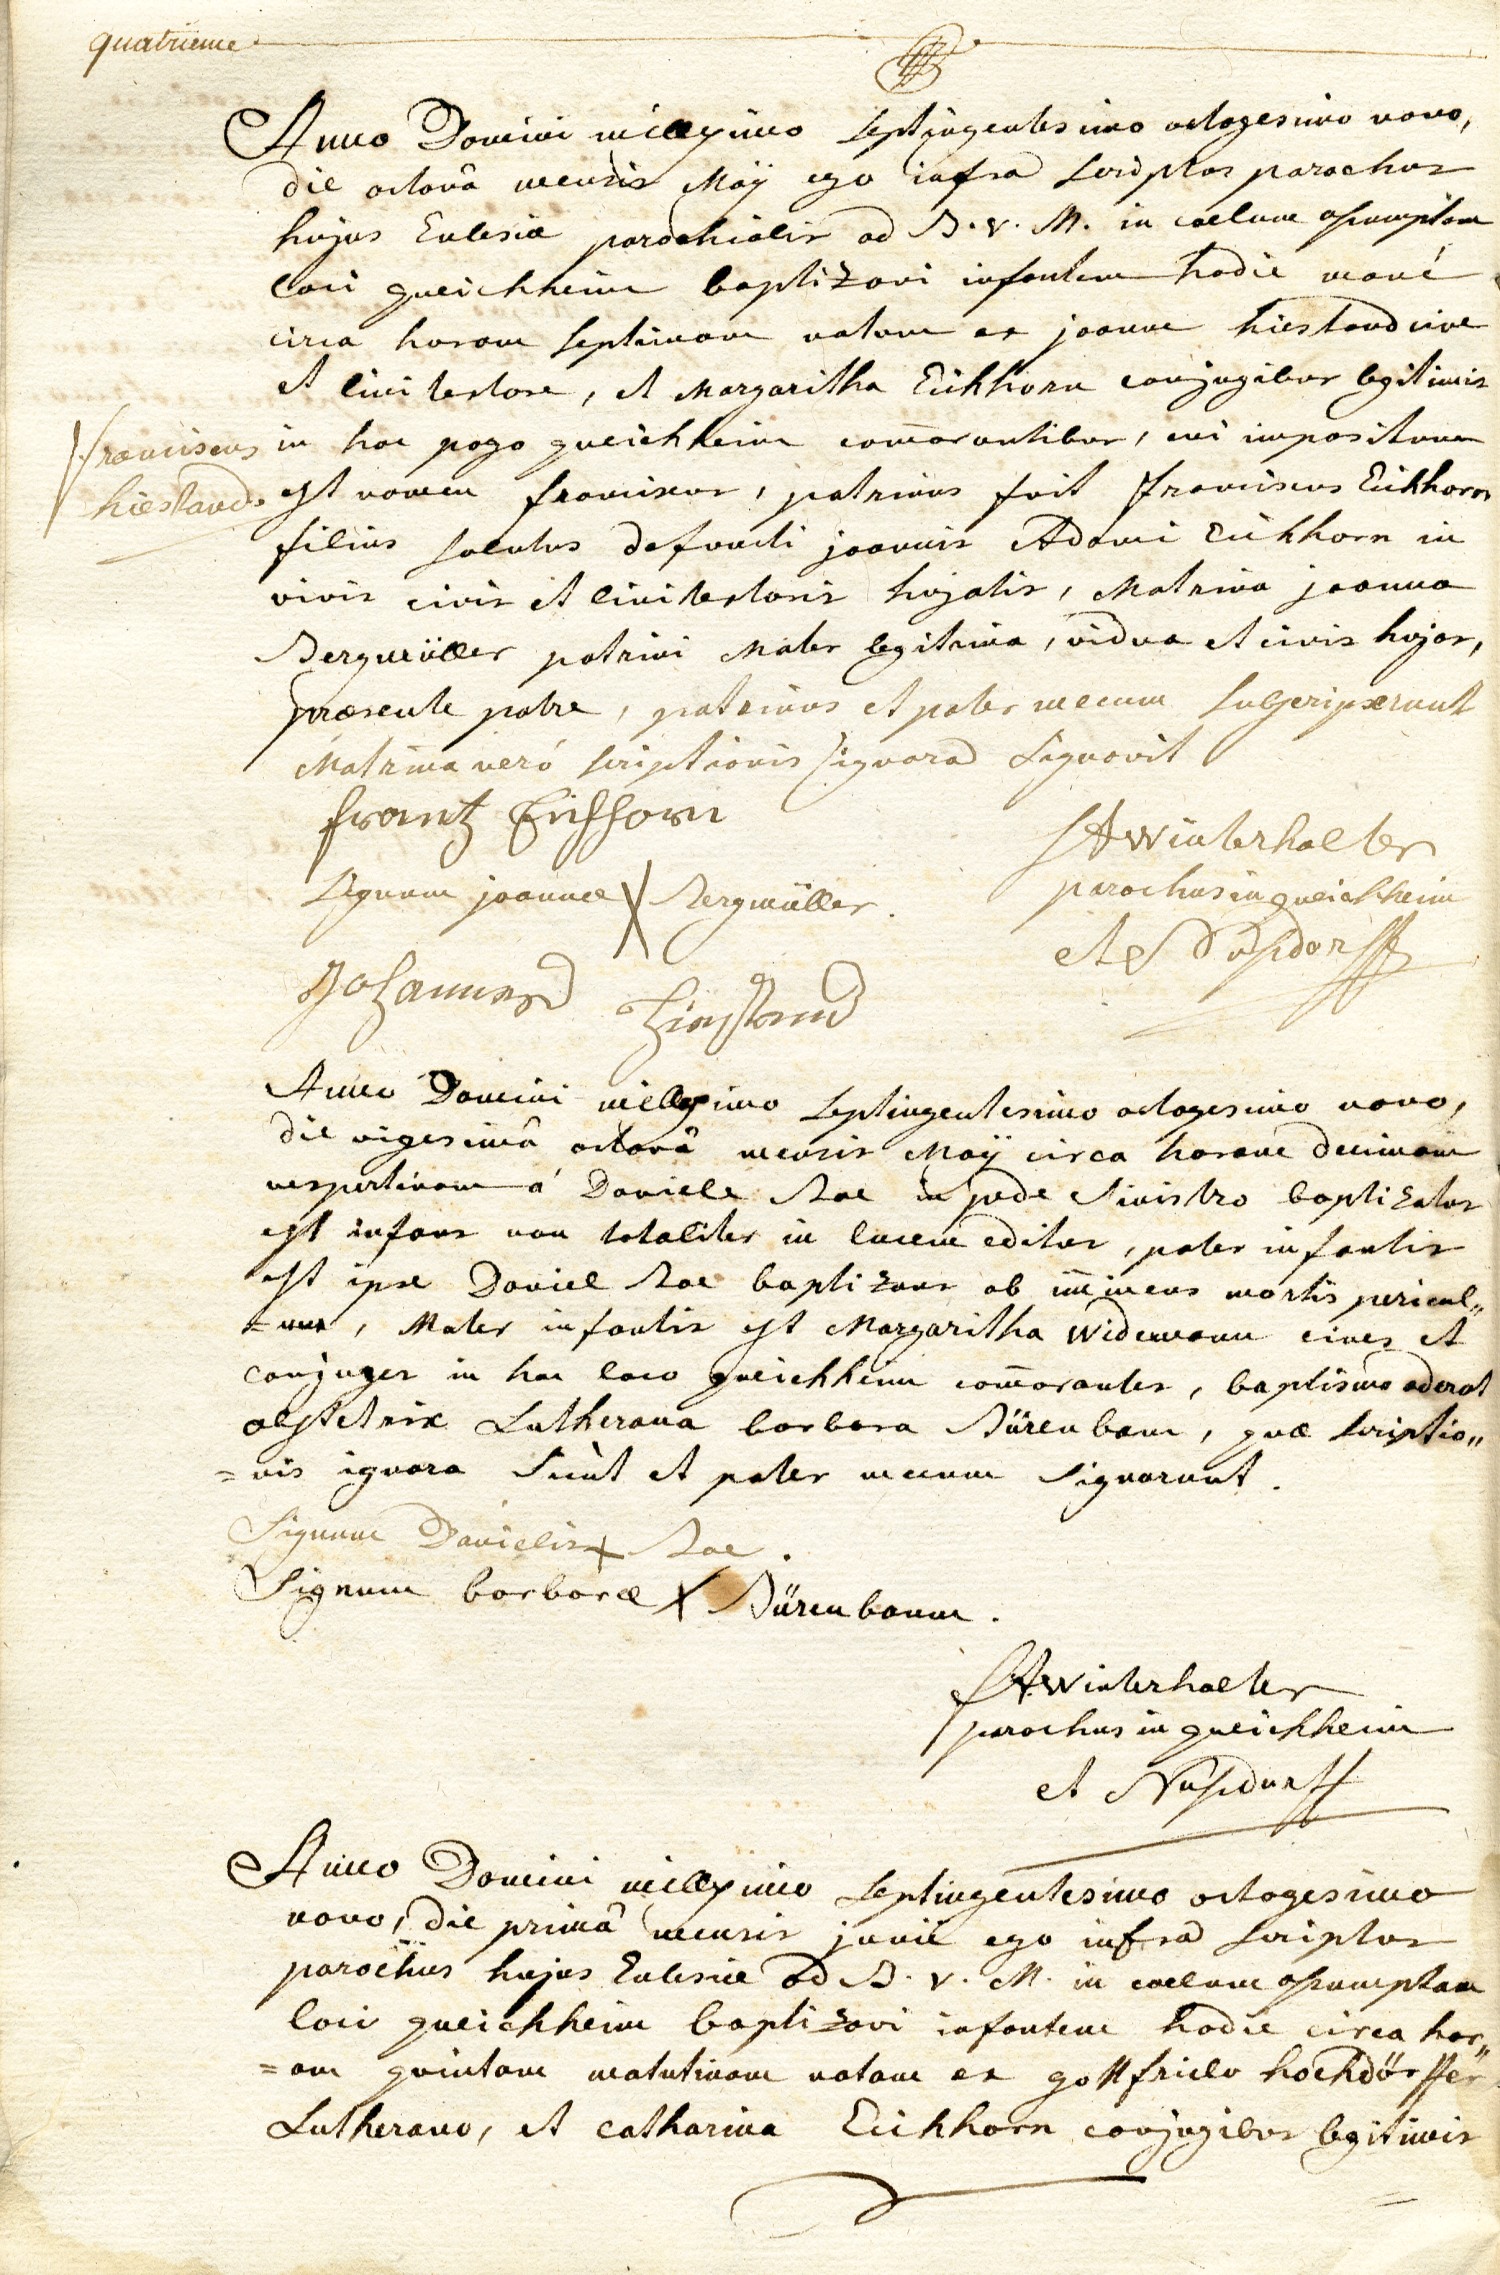 quatrieme
Anno Domini millesimo septingentesimo octogesimo nono,
die octavâ mensis Maÿ ego infra scriptus parochus
hujus Eclesiæ parochialis ad B. v. M. in coelum assumptam
loci queichheim baptizavi infantem hodie mané
circa horam septimam natum ex joanne hiestand cive
et linitextore, et Margaritha Eichhorn conjugibus legitimis
in hoc pago queichheim com̄orantibus, cui impositum
franciscus
hiestand
est nomen franciscus, patrinus fuit franciscus Eichhorn
filius solutus defuncti joannis Adami Eichhorn in
vivis civis et linitextoris hujatis, Matrina joanna
Bergmüller patrini Mater legitima, vidua et civis hujas,
præsente patre, patrinus et pater mecum subscripserunt
Matrina veró scriptionis ignara signavit
frantz Eichhorn
signum joannæ X Bergmüller.
Johannes Hiestand
FA Winterhalter
parochus in queichheim
et Nusdorff
Anno Domini millesimo septingentesimo octogesimo nono,
die vigesimâ octavâ mensis Maÿ circa horam decimam
vespertinam á Daniele in pede sinistro baptizatus
est infans non totaliter in lucem editus, pater infantis
est ipse Daniel baptizans ob im̄inens mortis pericul„
=um, Mater infantis est Margaritha Widemann cives et
conjuges in hoc loco queichheim com̄orantes, baptismo aderat
obstetrix Lutherana barbara Bürenbaum, quæ scriptio„
=nis ignara sicut et pater mecum signarunt.
Signum Danielis +
Signum barbaræ X Bürenbaum.
FA Winterhalter
parochus in queichheim
et Nusdorff
Anno Domini millesimo septingentesimo octogesimo
nono, die primâ mensis junii ego infra scriptus
parochus hujus Eclesiæ ad B. v. M. in coelum assumptam
loci queichheim baptizavi infantem hodie circa hor„
=am quintam matutinam natam ex gottfrido hochdörffer
Lutherano, et catharina Eichhorn conjugibus legitimis